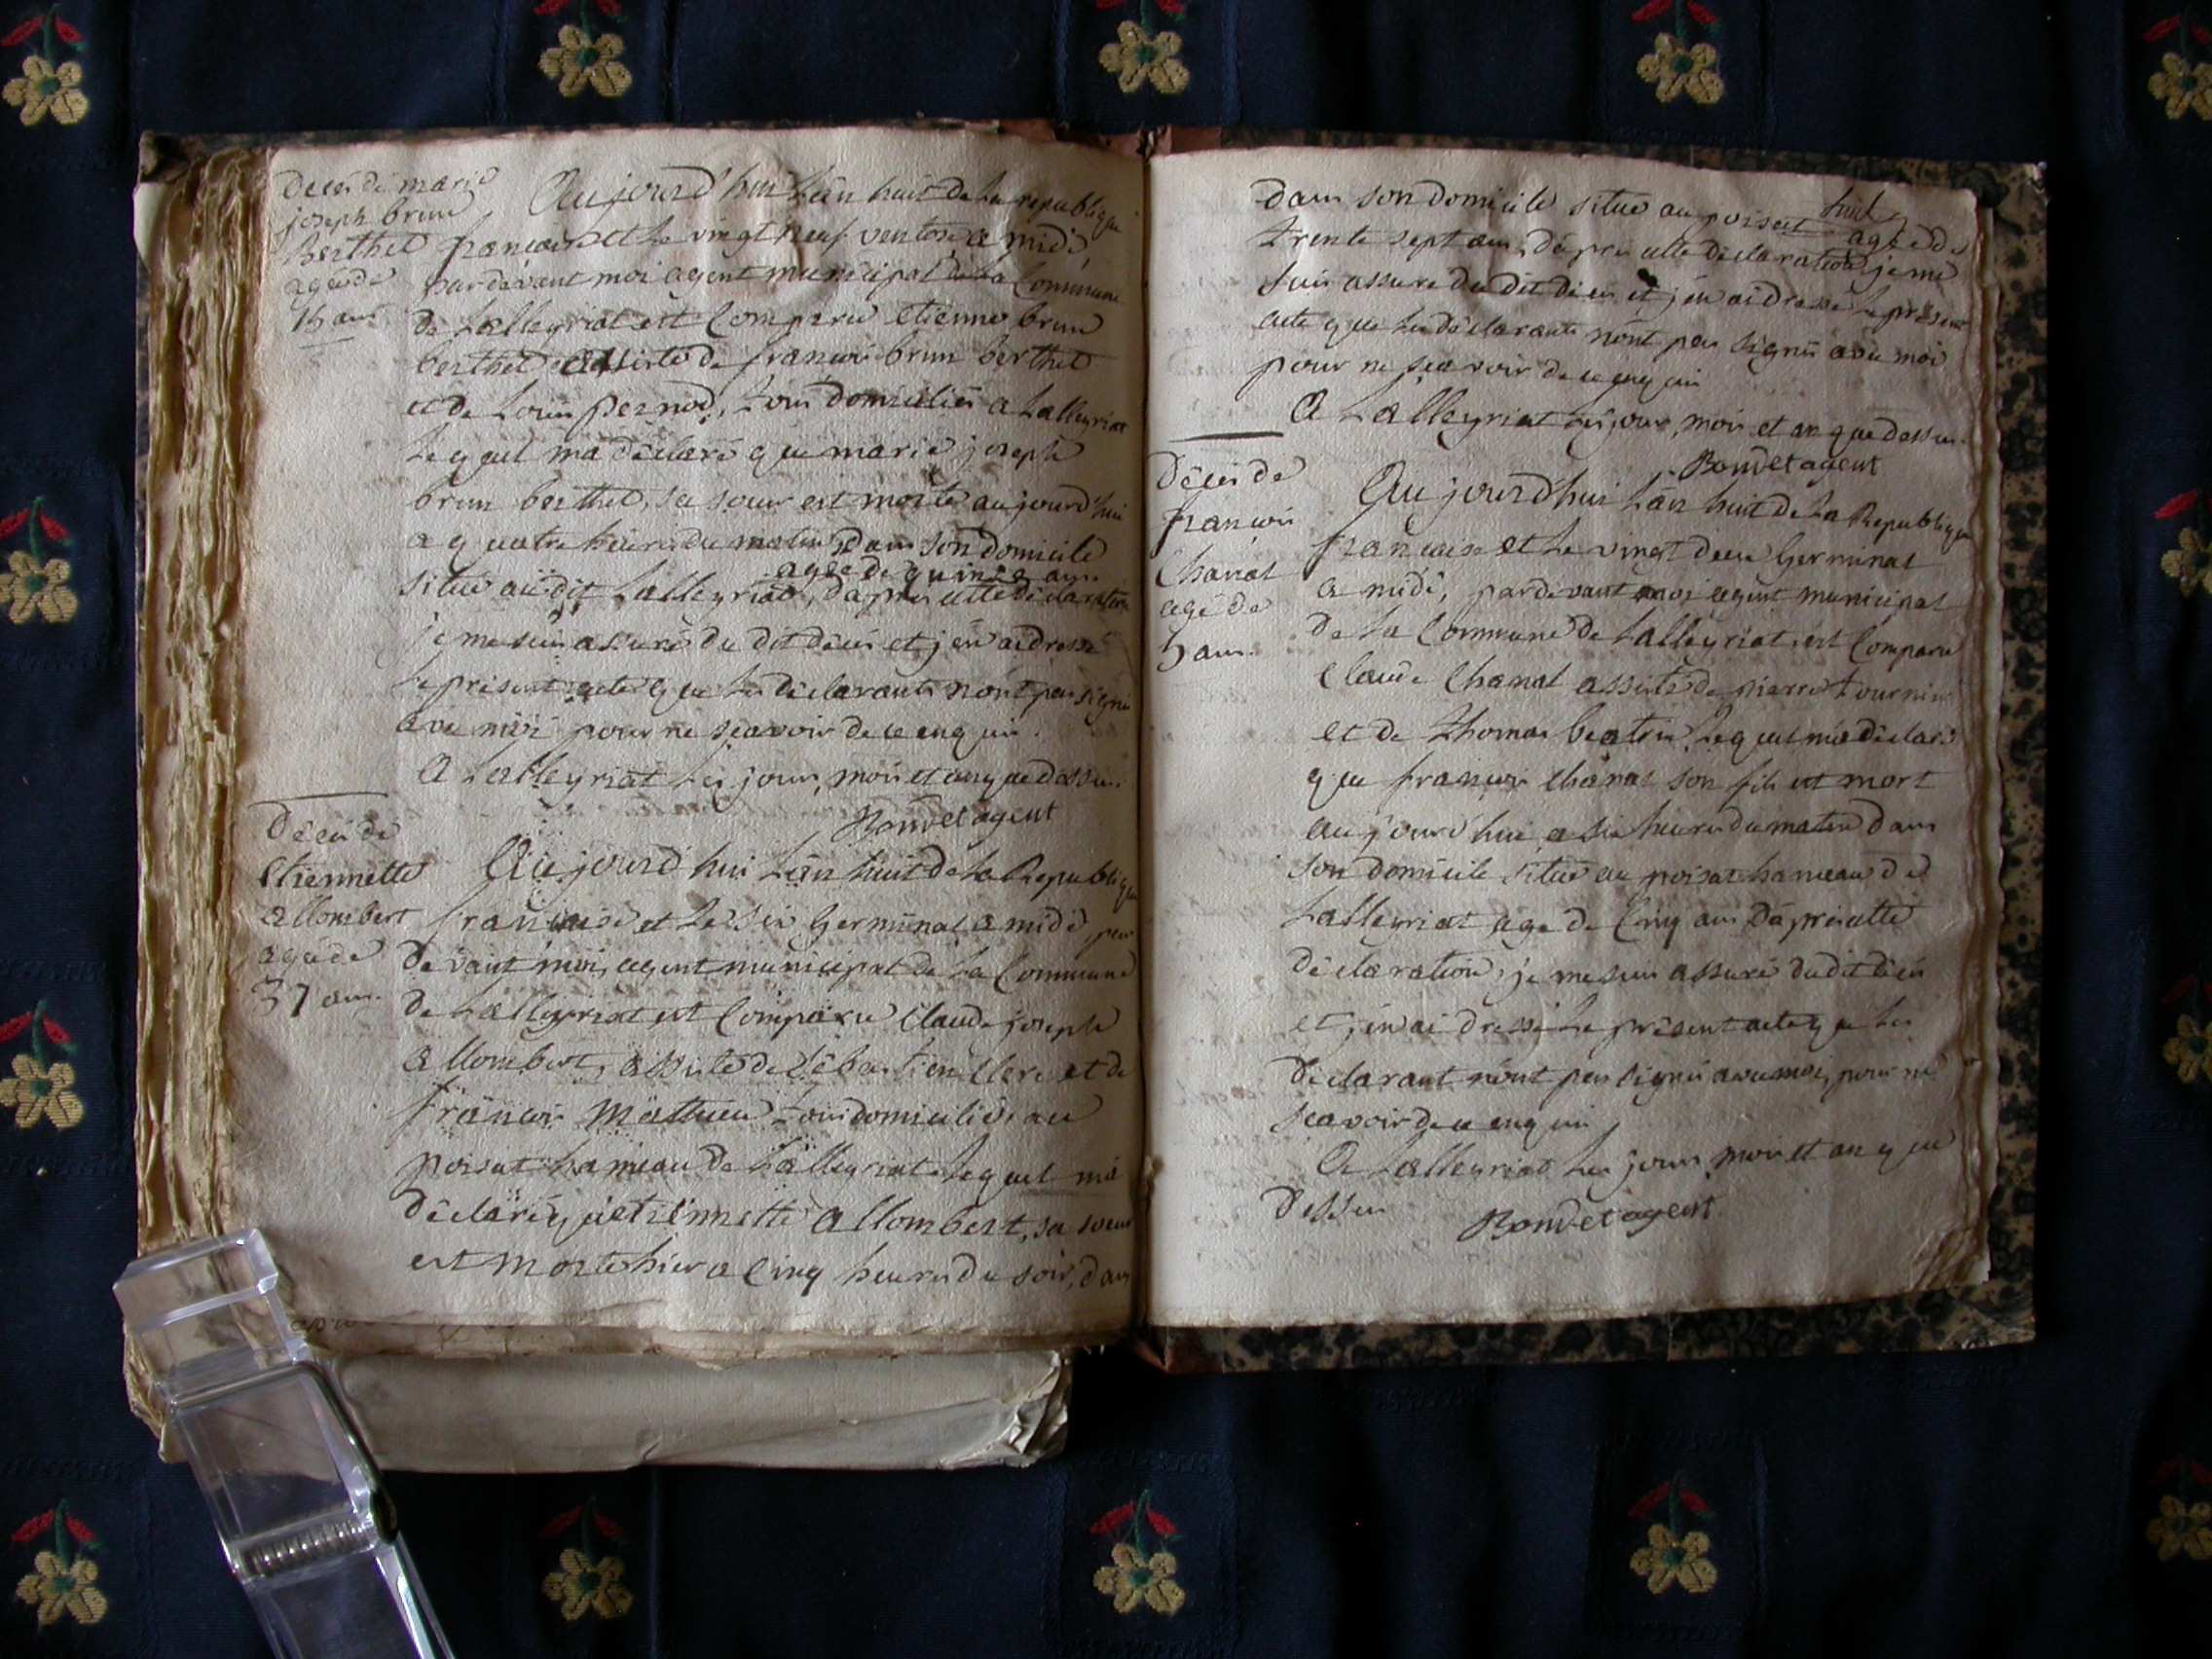 Décès de marie
joseph brun
Berthet
agée de
15 ans
Aujourd'hui L'an huit de La republique
francaise et le vingt neuf ventose a midi,
pardevant moi agent municipal de La Commune
de Lalleyriat est Comparu etienne brun
berthet assisté de francois brun berthet
et de Louis pernod, tous domiciliés a Lalleyriat
Lequel ma déclaré que marie joseph
brun berthet, sa sœur est morte aujourd'hui
a quatre heures du matin dans son domicile
agée de quinze ans
situé au dit Lalleyriat, d'après cette declaration
je me suis assuré du dit décès et j'en ai dressé
Le présent acte que Les déclarants n'ont pas signé
avec moi pour ne scavoir de ce enquis.
A Lalleyriat Les jour, mois et an que dessus.
Bonvet agent
Décès de
Etiennette
allombert
agée de
37 ans.
Aujourd'hui L'an huit de La Republique
francaise et Le six Germinal a midi, par
devant moi, agent municipal de La Commune
de Lalleyriat est Comparu Claude joseph
allombert, assisté de sébastien Clerc et de
francois Mathieu tous domiciliés au
poisat hameau de Lalleyriat Lequel ma
déclaré qu'etiennette allombert, sa soeur
est morte hier a Cinq heures du soir, dans
dans son domicile situé au poisat agée de
trente sept ans, d'après cette déclaration je me
suis assuré du dit décès et j'en ai dressé Le présent
acte que Les déclarants n'ont pas signé avec moi
pour ne scavoir de ce enquis
A Lalleyriat Les jour, mois et an que dessus.
Bonvet agent
Décès de
francois
Chanal
agé de
5 ans.
Aujourd'hui L'an huit de La Republique
francaise et Le vingt deux Germinal
a midi, pardevant moi agent municipal
de La Commune de Lalleyriat, est Comparu
Claude Chanal assisté de pierre tournier
et de thomas beatrix Lequel ma déclaré
que francois Chanal son fils est mort
aujourd'hui a six heures du matin dans
son domicile situé au poisat hameau de
Lalleyriat agé de Cinq ans d'après cette
déclaration, je me suis assuré du dit décès
et j'en ai dressé Le présent acte que Les
déclarant n'ont pas signé avec moi, pour ne
scavoir de ce enquis
A Lalleyriat Les jour mois et an que
dessus
Bonvet agent